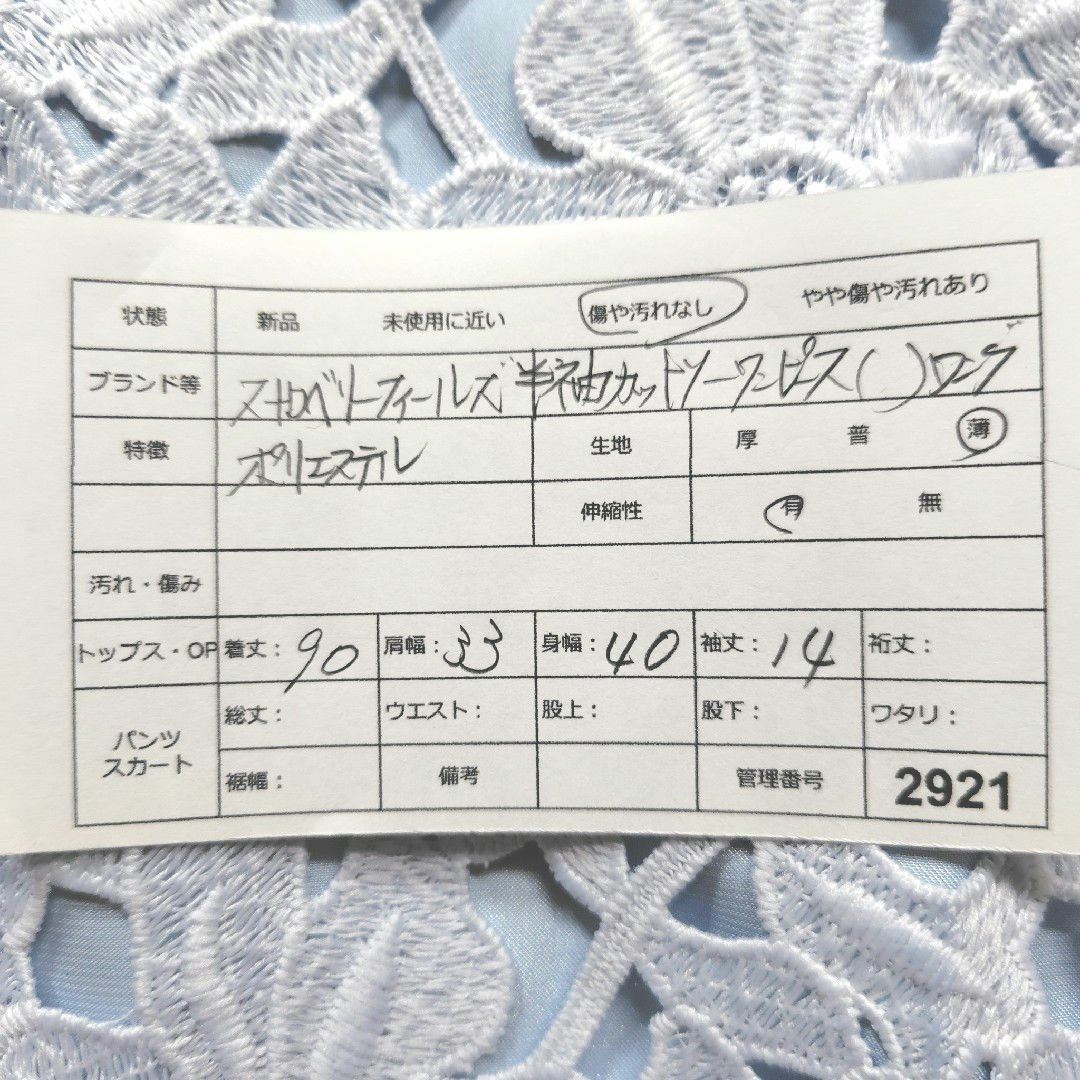 状態 新品 未使用に近い 傷や汚れなし やや傷や汚れあり
ブランド等 ストロベリーフィールズ 半袖カットソーワンピース( )ロング
特徴 ポリエステル 生地 厚 普 薄
伸縮性 有 無
汚れ・傷み
トップス・OP 着丈:90 肩幅:33 身幅:40 袖丈:14 裄丈:
パンツ スカート 総丈: ウエスト: 股上: 股下: ワタリ:
裾幅: 備考 管理番号 2921